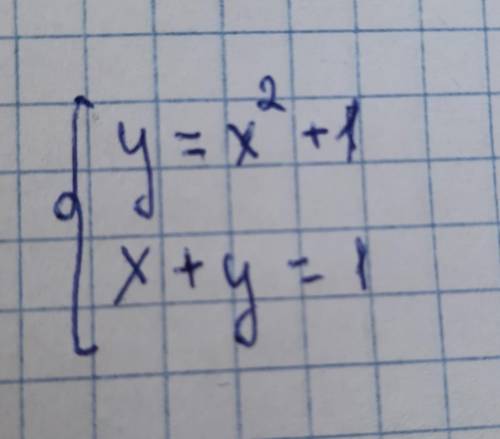 y = x² + 1
x + y = 1